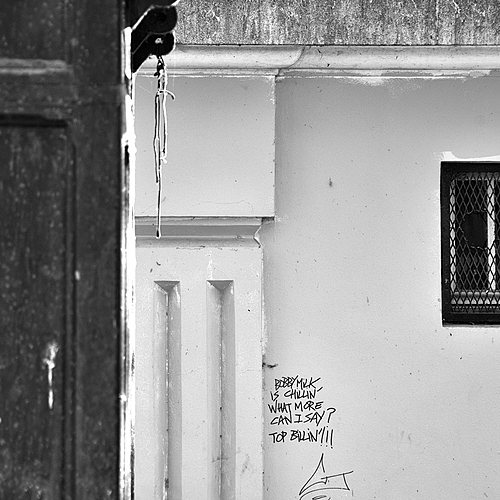 BOBBY MILK
IS CHILLIN'
WHAT MORE
CAN I SAY?
TOP BILLIN'!!!